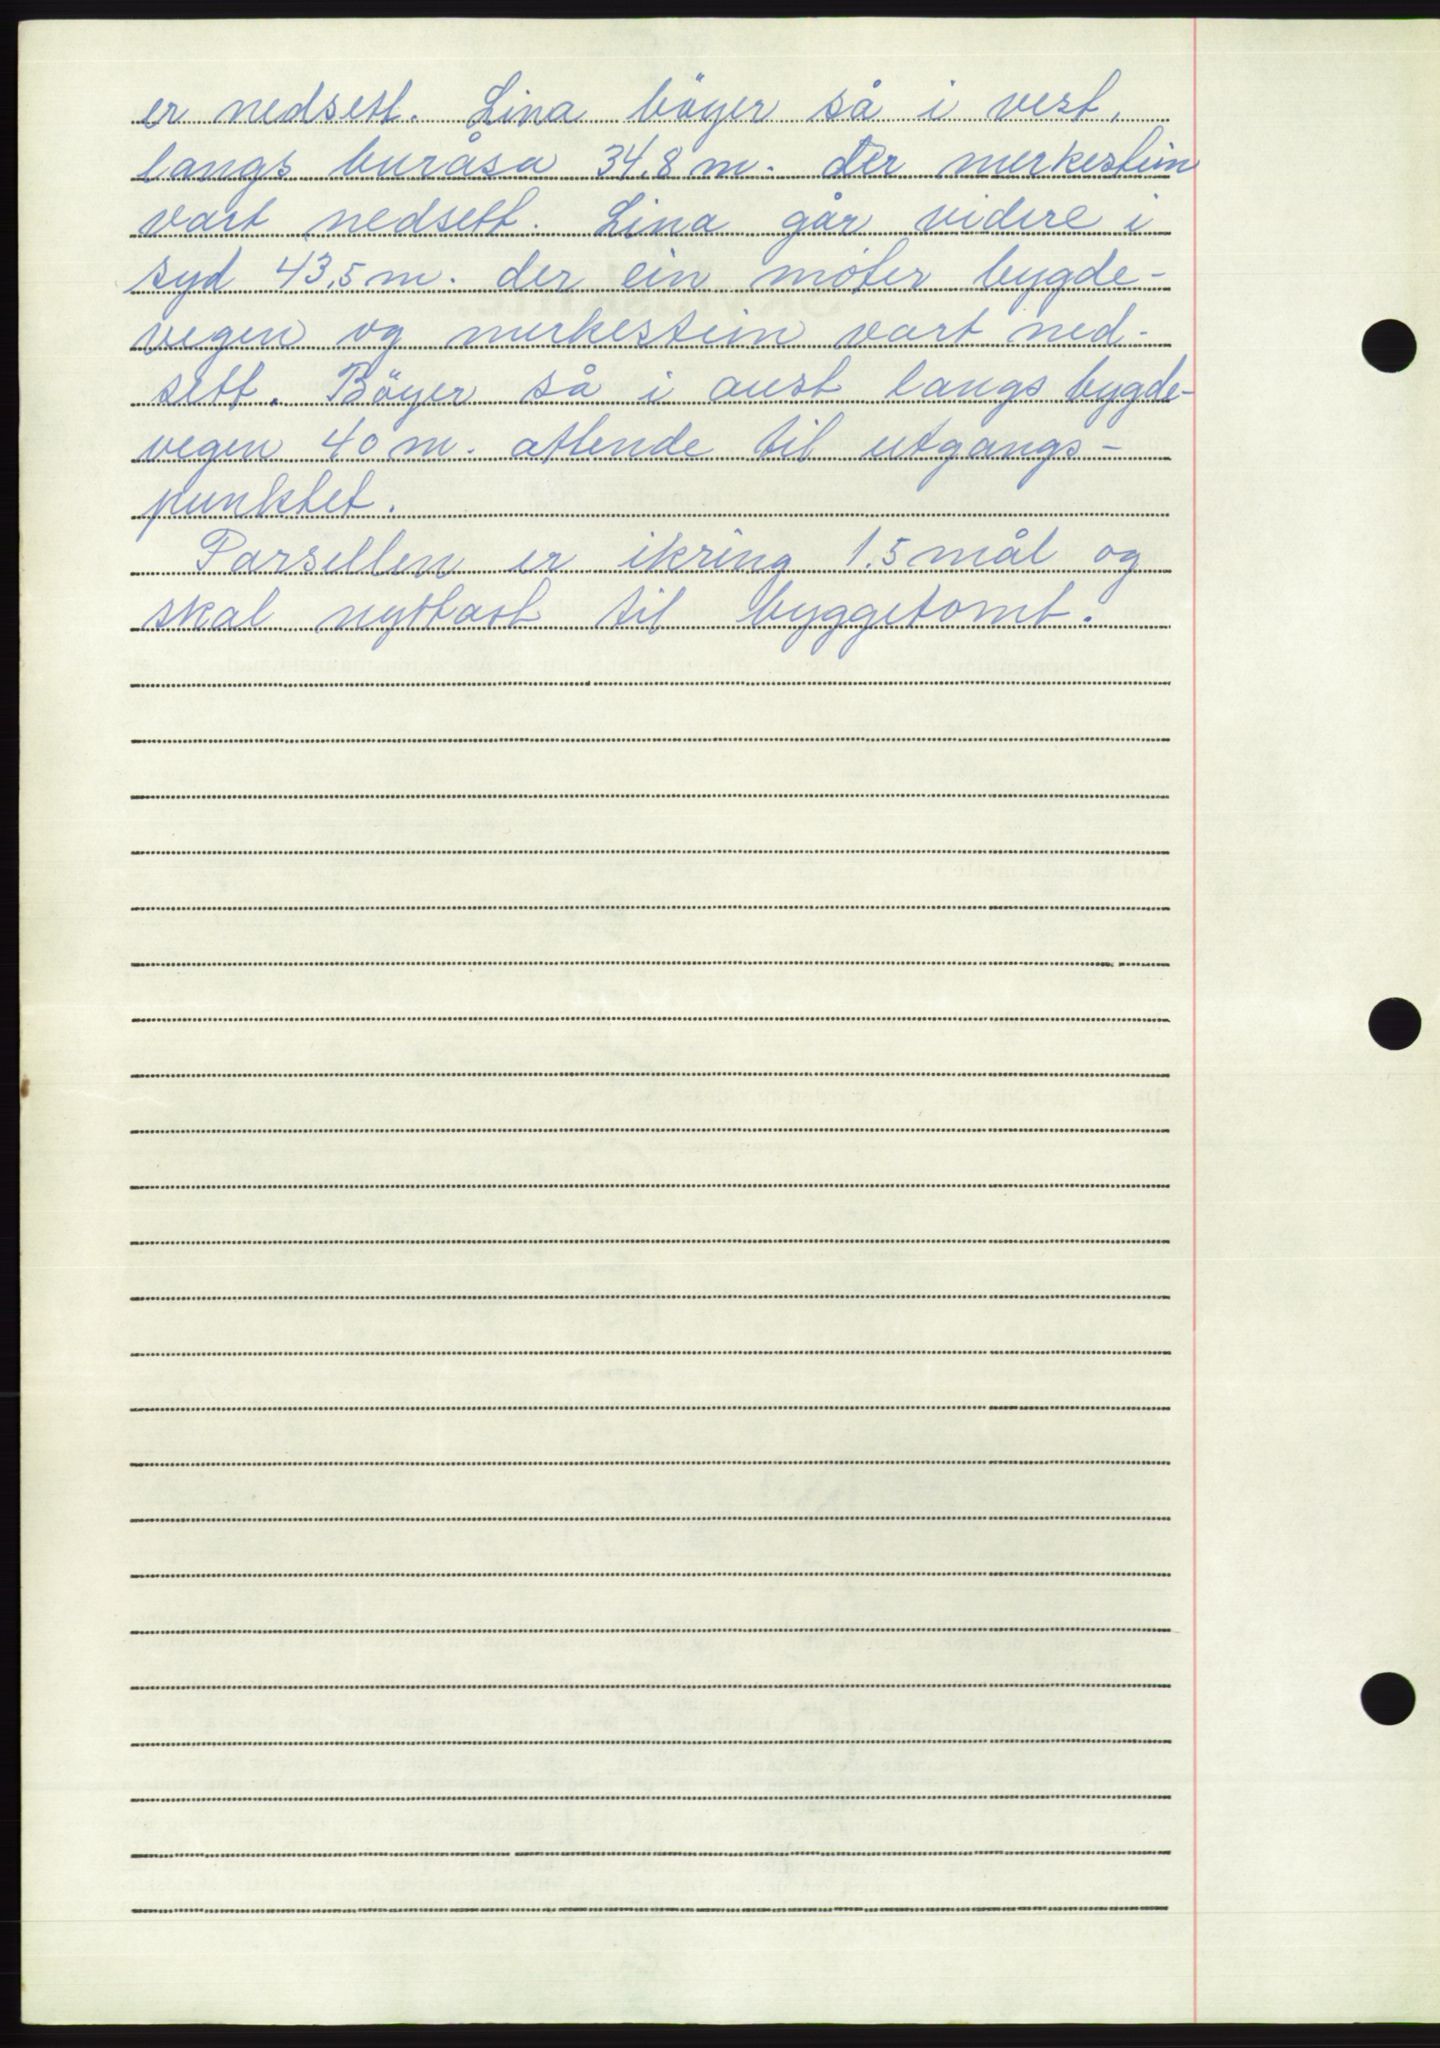 er nedsett. Lina böyer så i vest,
langs buråsa 34,8 m. der merkestein
vart nedsett. Lina går videre i
syd 43,5 m. der ein möter bygde-
vegen og merkestein vart ned-
sett. Böyer så i aust langs bygde-
vegen 40 m. attende til utgangs-
punktet.
Parsellen er ikring 1.5 mål og
skal nyttast til byggetomt.